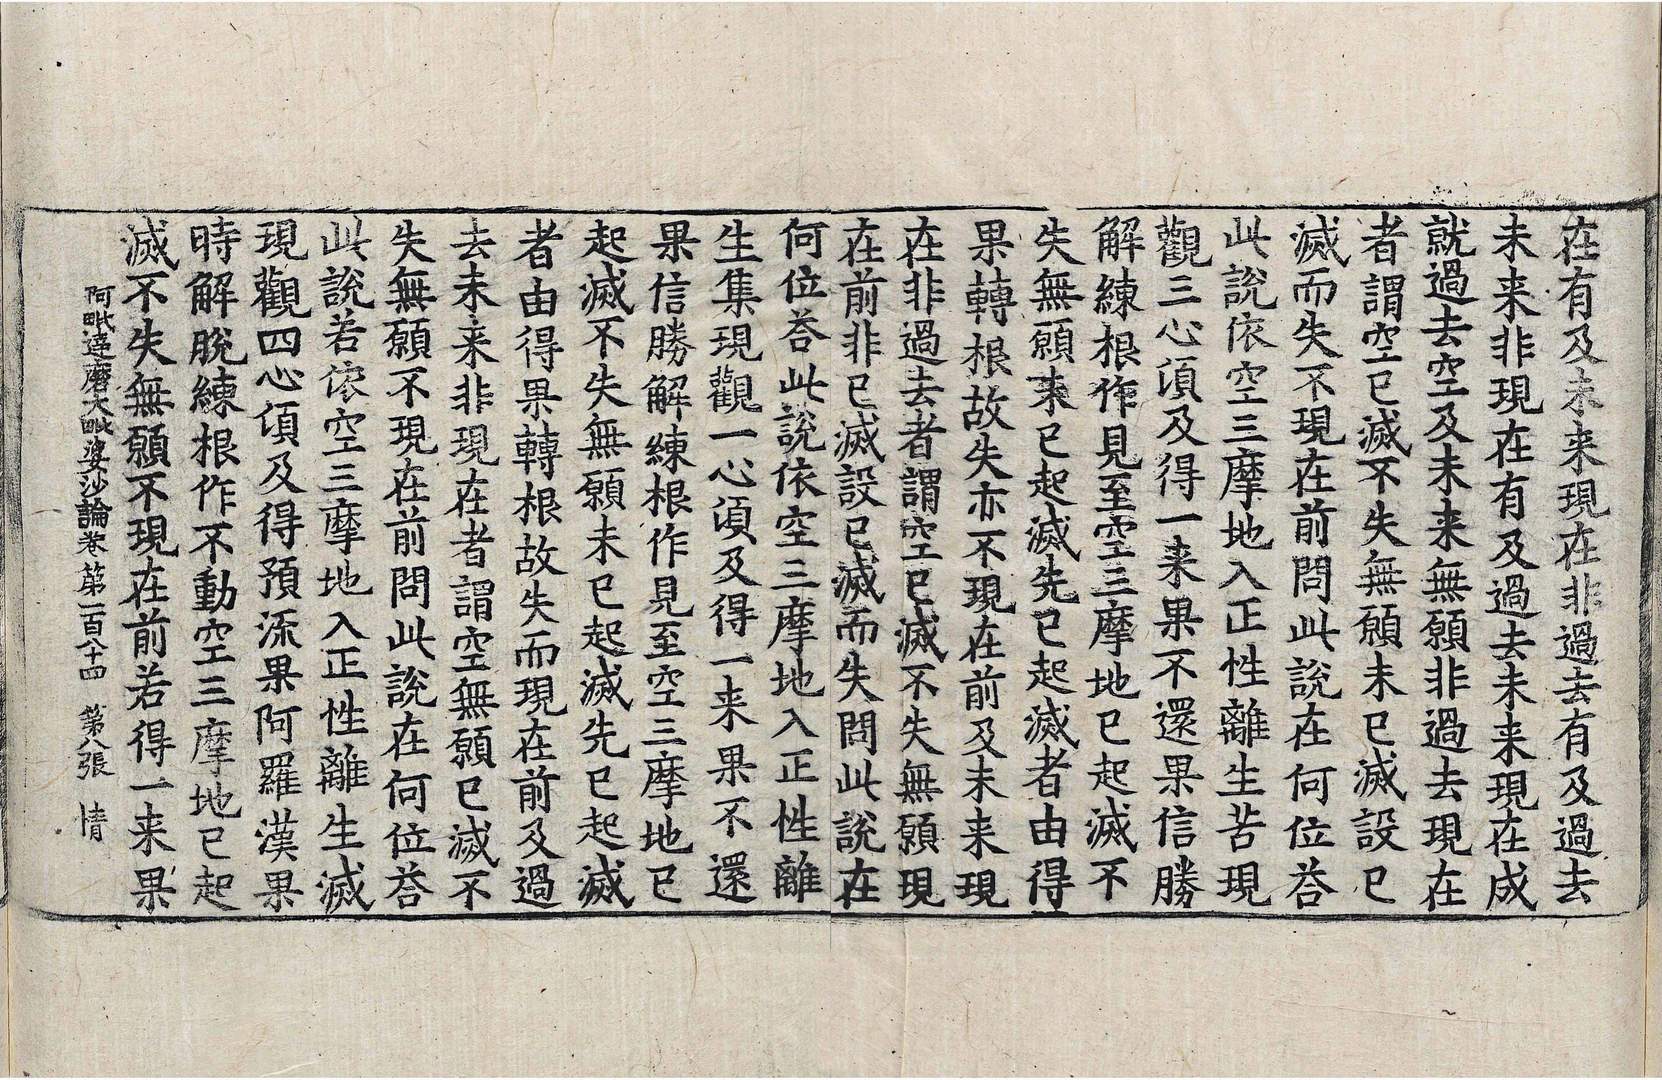 在有及未来現在非過去有及過去
未来非現在有及過去未来現在成
就過去空及未来無願非過去現在
者謂空已滅不失無願未已滅設已
滅而失不現在前問此說在何位荅
此說依空三摩地入正性離生苦現
觀三心湏及得一来果不還果信勝
解練根作見至空三摩地已起滅不
失無願来已起滅先已起滅者由得
果轉根故失亦不現在前及未来現
在非過去者謂空已滅不失無願現
在前非已滅設已滅而失問此說在
何位荅此說依空三摩地入正性離
生集現觀一心湏及得一来果不還
果信勝解練根作見至空三摩地已
起滅不失無願未已起滅先已起滅
者由得果轉根故失而現在前及過
去未来非現在者謂空無願已滅不
失無願不現在前問此說在何位荅
此說若依空三摩地入正性離生滅
現觀四心湏及得預流果阿羅漢果
時解脫練根作不動空三摩地已起
滅不失無願不現在前若得一来果
阿毗達磨大毗婆沙論卷第一百八十四 第八張 情